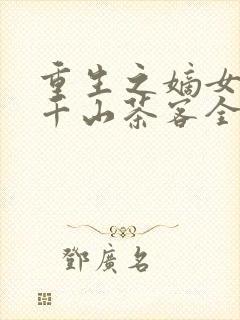 重生之嫡女
千山茶客全
鄧廣名